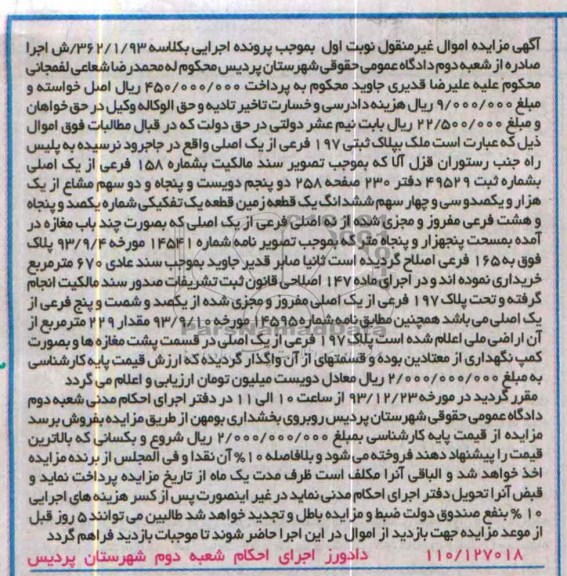 آگهی مزایده اموال غیرمنقول نوبت اول بموجب پرونده اجرایی بکلاسه ۳۶۲/۱/۹۳/ش اجرا
صادره از شعبه دوم دادگاه عمومی حقوقی شهرستان پردیس محکوم له محمدرضا شعاعی لفمجانی
محکوم علیه علیرضا قدیری جاوید محکوم به پرداخت ۴۵۰/۰۰۰/۰۰۰ ریال اصل خواسته و
مبلغ ۹/۰۰۰/۰۰۰ ریال هزینه دادرسی و خسارت تاخیر تادیه و حق الوکاله وکیل در حق خواهان
و مبلغ ۲۲/۵۰۰/۰۰۰ ریال بابت نیم عشر دولتی در حق دولت که در قبال مطالبات فوق اموال
ذیل که عبارت است ملک بپلاک ثبتی ۱۹۷ فرعی از یک اصلی واقع در جاجرود نرسیده به پلیس
راه جنب رستوران قزل آلا که بموجب تصویر سند مالکیت بشماره ۱۵۸ فرعی از یک اصلی
بشماره ثبت ۴۹۵۲۹ دفتر ۲۳۰ صفحه ۲۵۸ دو پنجم دویست و پنجاه و دو سهم مشاع از یک
هزار و یکصدو سی و چهار سهم ششدانگ یک قطعه زمین قطعه یک تفکیکی شماره یکصد و پنجاه
و هشت فرعی مفروز و مجزی شده از نه اصلی فرعی از یک اصلی که بصورت چند باب مغازه در
آمده بمسحت پنجهزار و پنجاه متر که بموجب تصویر نامه شماره ۱۴۵۴۱ مورخه ۹۳/۹/۴ پلاک
فوق به ۱۶۵ فرعی اصلاح گردیده است ثانیا صابر قدیر جاوید بموجب سند عادی ۶۷۰ مترمربع
خریداری نموده اند و در اجرای ماده ۱۴۷ اصلاحی قانون ثبت تشریفات صدور سند مالکیت انجام
گرفته و تحت پلاک ۱۹۷ فرعی از یک اصلی مفروز و مجزی شده از یکصد و شصت و پنج فرعی از
یک اصلی می باشد همچنین مطابق نامه شماره ۱۴۵۹۵ مورخه ۹۳/۹/۱۰ مقدار ۱۲۹ مترمربع از
آن اراضی ملی اعلام شده است پلاک ۱۹۷ فرعی از یک اصلی در قسمت پشت مغازه ها و بصورت
کمپ نگهداری از معتادین بوده و قسمتهای از آن واگذار گردیده که ارزش قیمت پایه کارشناسی
به مبلغ ۲/۰۰۰/۰۰۰/۰۰۰ ریال معادل دویست میلیون تومان ارزیابی و اعلام می گردد
مقرر گردید در مورخه ۹۳/۱۲/۲۳ از ساعت ۱۰ الی ۱۱ در دفتر اجرای احکام مدنی شعبه دوم
دادگاه عمومی حقوقی شهرستان پردیس روبروی بخشداری بومهن از طریق مزایده بفروش برسد
مزایده از قیمت پایه کارشناسی بمبلغ ۲/۰۰۰/۰۰۰/۰۰۰ ریال شروع و بکسانی که بالاترین
قیمت را پیشنهاد دهند فروخته می شود و بلافاصله ۱۰% آن نقدا و فی المجلس از برنده مزایده
اخذ خواهد شد و الباقی آنرا مکلف است ظرف مدت یک ماه از تاریخ مزایده پرداخت نماید و
قبض آنرا تحویل دفتر اجرای احکام مدنی نماید در غیر اینصورت پس از کسر هزینه های اجرایی
۱۰% بنفع صندوق دولت ضبط و مزایده باطل و تجدید خواهد شد طالبین می توانند ۵ روز قبل
از موعد مزایده جهت بازدید از اموال در این اجرا حاضر شوند تا موجبات بازدید فراهم گردد
۱۱۰/۱۲۷۰۱۸ دادورز اجرای احکام شعبه دوم شهرستان پردیس